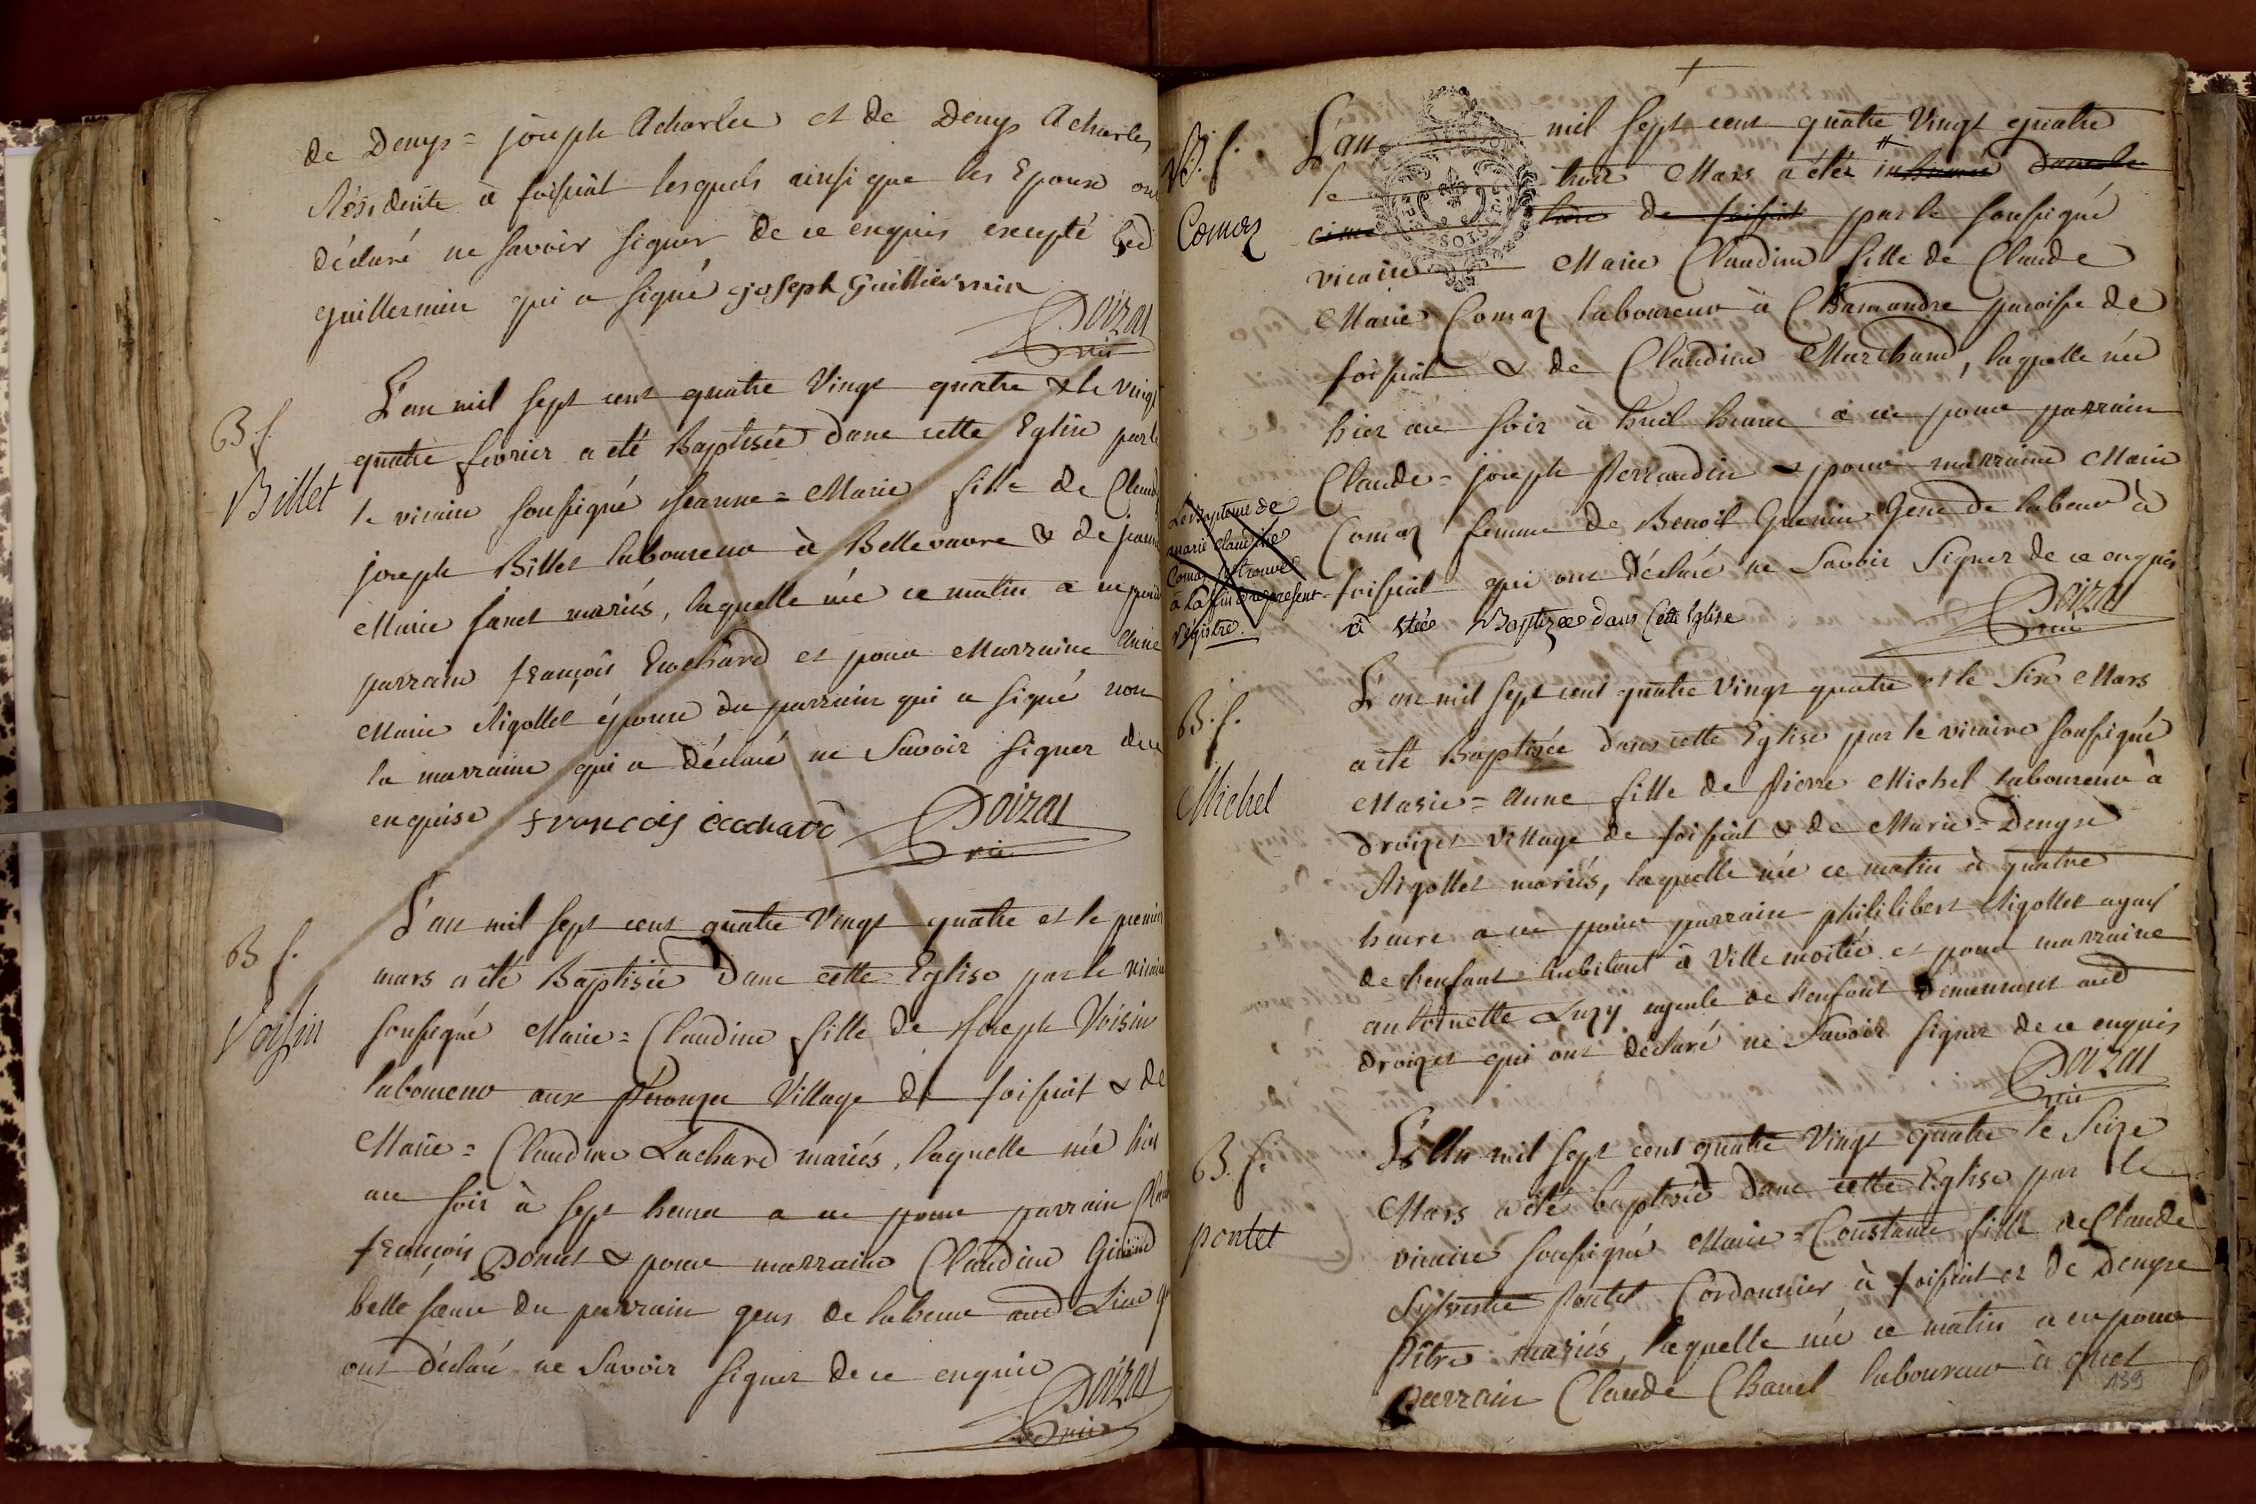 de Denys = joseph Acharles et de Denys Acharles
Résidente à foissiat lesquels ainsi que les Epoux ont
déclaré ne savoir signer de ce enquis excepté led
guillermin qui a signé joseph Guilliermin
Doizat
vic
B f.
Billet
L'an mil sept cent quatre Vingt quatre & le vingt
quatre fevrier a été Baptisée dans cette Eglise par le
le vicaire soussigné jeanne = Marie fille de Claude
joseph Billet laboureur à Bellevavre & de jeanne
Marie fanet mariés, laquelle née ce matin a eu pour
parrain françois Ecochard et pour Marraine Anne
Marie Rigollet épouse du parrain qui a signé non
la marraine qui a déclaré ne Savoir signer de ce
enquise françois écochard
Doizat
vic
B f.
Voisin
L'an mil sept cent quatre Vingt quatre et le premier
mars a été Baptisée dans cette Eglise par le vicaire
soussigné Marie = Claudine fille de Joseph Voisin
laboureur aux Village de foissiat & de
Marie = Claudine Lachard mariés, laquelle née hier
au soir à sept heures a eu pour parrain
françois Donet & pour marraine Claudine
belle sœur du parrain gens de labeur aud Lieu qui
ont déclaré ne Savoir signer de ce enquis
Doizat
vic
B. f.
Comas
L'an mil sept cent quatre Vingt quatre
le trois Mars a étée inhumée dans le
cime tiere de foissiat par le soussigné
vicaire Marie Claudine fille de Claude
Marie Comas laboureur à Chamandre paroisse de
foissiat & de Claudine Marchand, laquelle née
hier au soir à huit heures a eu pour parrain
Claude = joseph Perraudin & pour marraine Marie
Comas femme de Benoit Grenier Gens de labeur à
foissiat qui ont déclaré ne Savoir Signer de ce enquis
Doizat
vic
a étée Baptizée dans Cette Eglise
Le Baptome de
marie claudine
Comas se trouve
à la fin du present
Registre.
B. f.
Michel
L'an mil sept cent quatre Vingt quatre et le Six Mars
a été Baptisée dans cette Eglise par le vicaire soussigné
Marie = Anne fille de Pierre Michel laboureur à
droizet Village de foissiat & de Marie = Denyse
Rigollet mariés, laquelle née ce matin à quatre
heure a eu pour parrain phililibert Rigollet ayeul
de l'enfant habitant à Ville moitié et pour marraine
antoinette Luzy ayeule de l'enfant demeurant aud
droizet qui ont déclaré ne Savoir signer de ce enquis
Doizat
vic
B. f.
pontet
L'An mil sept cent quatre Vingt quatre le Seize
Mars a été baptisée dans cette Eglise par le
vicaire soussigné Marie = Constance fille de Claude
Sylvestre Pontet Cordonnier à foissiat et de Denyse
Pitre mariés, laquelle née ce matin a eu pour
parrain Claude Chanel laboureur à
139